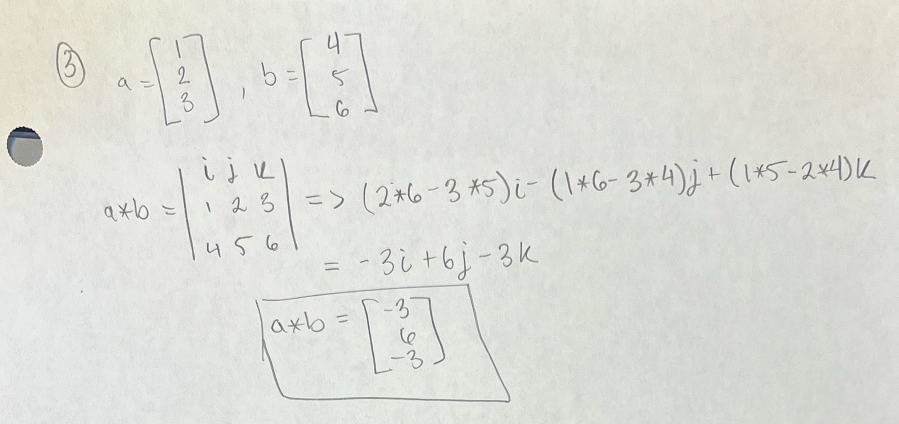 ③ a = [1 2 3], b = [4 5 6]
a*b = |i j k
1 2 3
4 5 6| => (2*6-3*5)i-(1*6-3*4)j+(1*5-2*4)k
= -3i+6j-3k
a*b = [-3 6 -3]